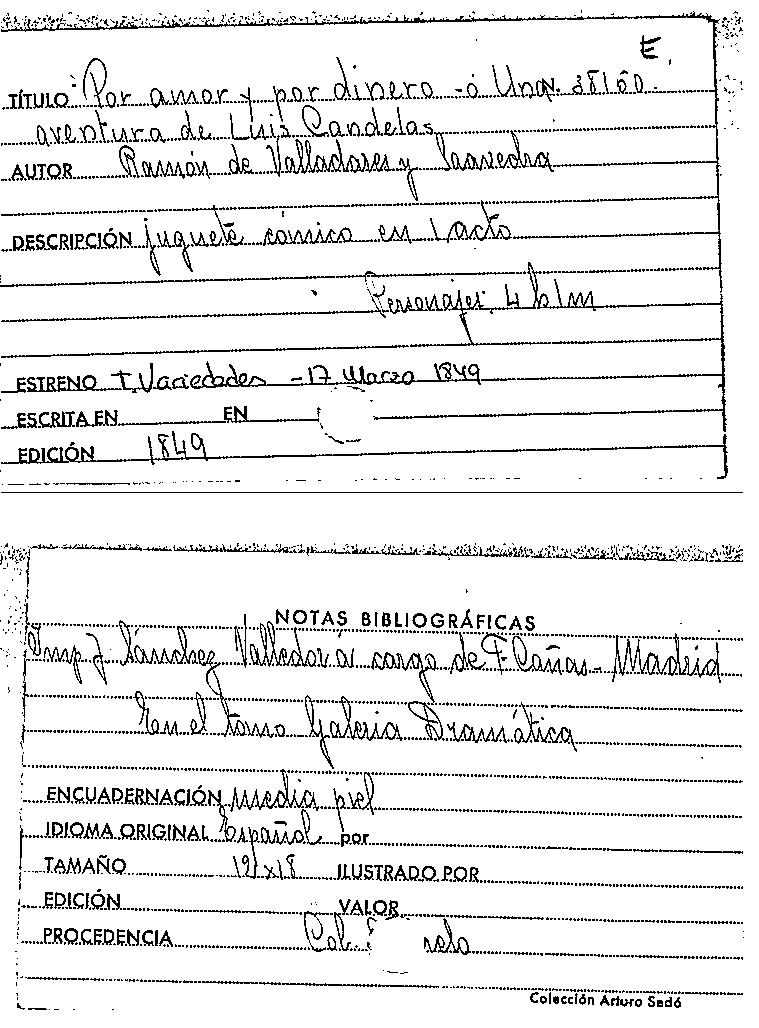 E.
TÍTULO Por amor y por dinero - ó Una N. 38160.
aventura de Luis Candelas
AUTOR Ramón de Valladares y Saavedra
DESCRIPCIÓN juguete cómico en 1 acto
Personajes: 4 h 1m
ESTRENO T. Variedades - 17 Marzo 1849
ESCRITA EN EN
EDICIÓN 1849
NOTAS BIBLIOGRÁFICAS
Imp J. Sánchez Valledor á cargo de F. Cañas - Madrid
En el tomo Galeria Dramática
ENCUADERNACIÓN media piel
IDIOMA ORIGINAL Español por
TAMAÑO ILUSTRADO POR
EDICIÓN VALOR
PROCEDENCIA Col.
Colección Arturo Sedó